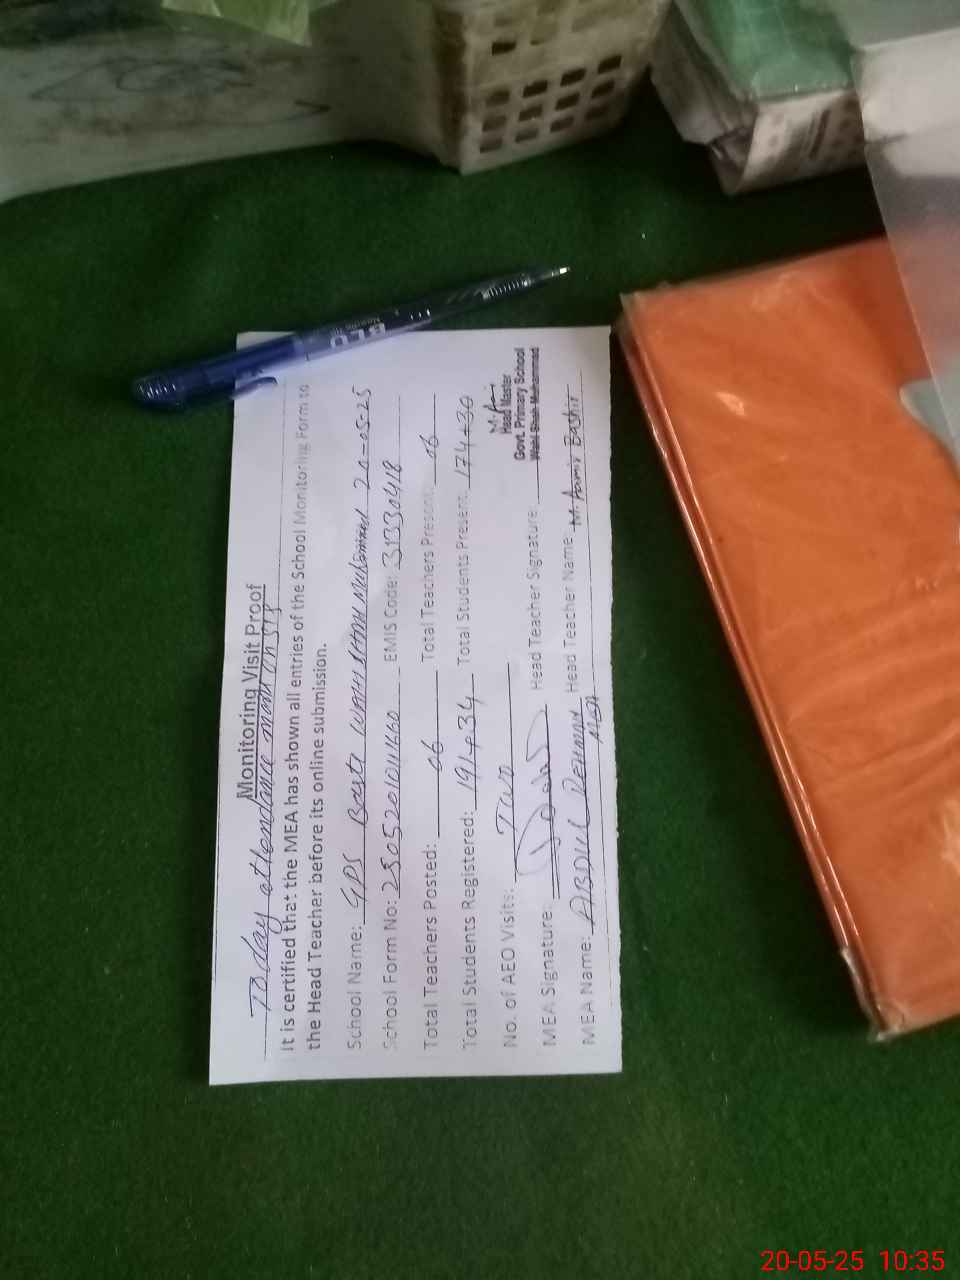 Monitoring Visit Proof
Today attendance mark on SIS
It is certified that the MEA has shown all entries of the School Monitoring Form to
the Head Teacher before its online submission.
School Name: GPS Basti WAHI SHAH Muhammad 20-05-25
School Form No: 25052010111660 EMIS Code: 31330418
Total Teachers Posted: 06 Total Teachers Present: 06
Total Students Registered: 191+34 Total Students Present: 174+30
No. of AEO Visits: Two
M. Aamir
Head Master
Govt. Primary School
Wahi Shah Muhammad
MEA Signature: Head Teacher Signature:
MEA Name: ABDUL REHMAN Head Teacher Name: M. Aamir Bashir
MEA
20-05-25 10:35